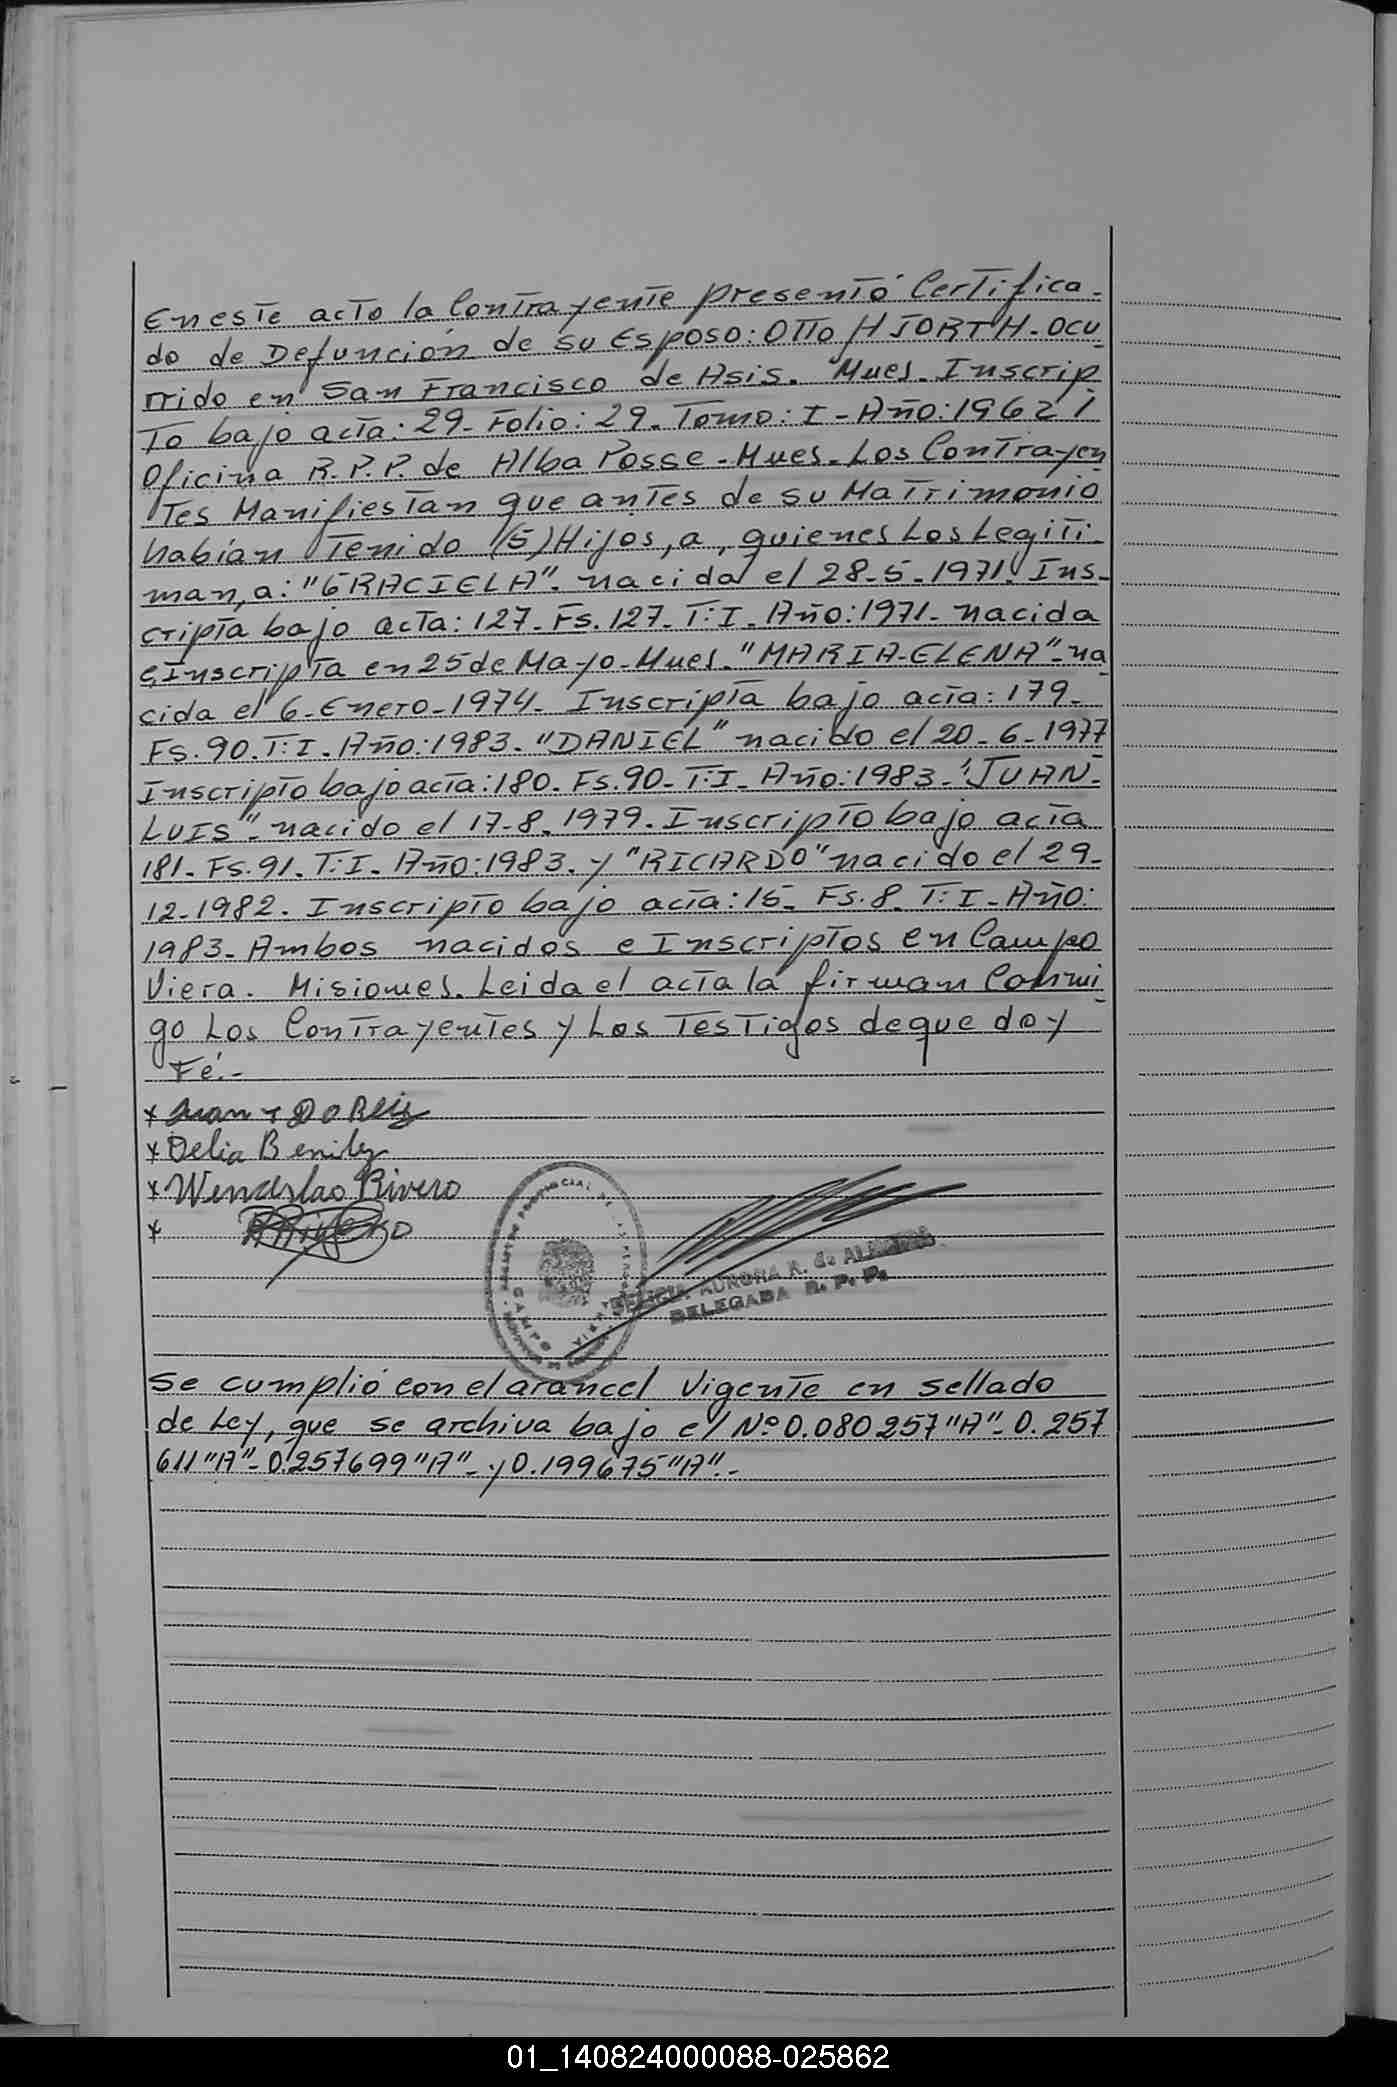 En este acto la Contrayente presentó Certifica-
do de Defunción de su Esposo: OTTO HJORTH-ocu
rrido en San Francisco de Asis. Mnes. Inscrip
To bajo acta: 29- Folio: 29. Tomo: I - Año: 1962 i
Oficina R.P.P. de Alba Posse-Mnes. Los Contrayen
Tes Manifiestan que antes de su Matrimonio
habían Tenido (5) Hijos, a, quienes Los Legiti-
man, a: "GRACIELA". nacida el 28-5-1971. Ins-
cripta bajo acta: 127- Fs. 127- T: I- Año: 1971- nacida
e Inscripta en 25 de Mayo-Mnes. "MARIA-ELENA"-na
cida el 6-Enero-1974- Inscripta bajo acta: 179-
Fs. 90. T: I. Año: 1983- "DANIEL" nacido el 20-6-1977
Inscripto bajo acta: 180. Fs. 90- T: I- Año: 1983- "JUAN-
LUIS"- nacido el 17-8-1979. Inscripto bajo acta
181- Fs. 91. T: I- Año: 1983. y "RICARDO" nacido el 29-
12-1982. Inscripto bajo acta: 15- Fs. 8. T: I- Año:
1983- Ambos nacidos e Inscriptos en Campo
Viera. Misiones. Leida el acta la firman Conmi
go Los Contrayentes y Los Testigos de que doy
Fé.-
x Juan
x Delia Benitez
x Wenceslao Rivero
x
CAMPO
AURORA K. de
DELEGADA R. P. P.
Se cumplió con el arancel Vigente en sellado
de Ley, que se archiva bajo el Nº 0.080257 "A"- 0.257
611 "A"- 0.257699 "A"- y 0.199675 "A".-
01_140824000088-025862